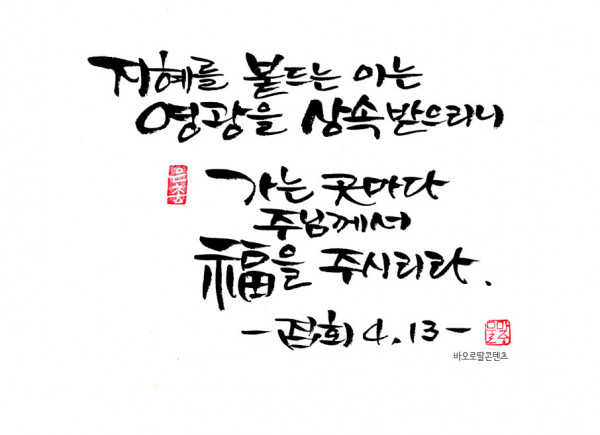 지혜를 붙드는 이는
영광을 상속받으리니
은총
가는 곳마다
주님께서
福을 주시리라.
- 집회 4,13 -
바오로딸콘텐츠